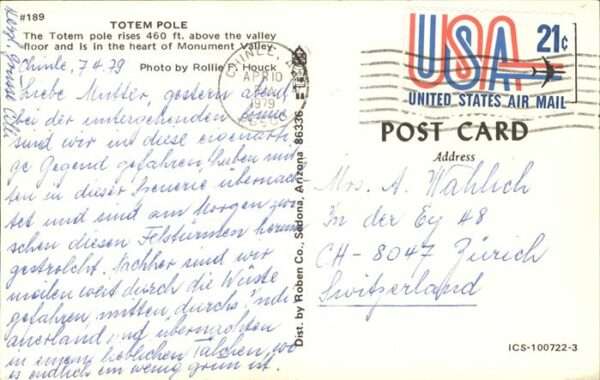 #189
TOTEM POLE
The Totem pole rises 460 ft. above the valley
floor and is in the heart of Monument Valley.
Photo by Rollie F. Houck
Chinle, 7.4.79
Liebe Mutter, gestern abend
bei der untergehenden Sonne
sind wir in diese eigenarti-
ge Gegend gefahren, haben mit-
ten in dieser Scenerie übernach-
tet und sind am Morgen zwi-
schen diesen Felstürmen herum
gestrolcht. Nachher sind wir
meilenweit durch die Wüste
gefahren, mitten durchs Indi
anerland und übernachten
in einem lieblichen Tälchen, wo
es endlich ein wenig grün ist.
Dist. by Roben Co., Sedona, Arizona 86336
CHINLE
APR 10
1979
USA 21c
UNITED STATES AIR MAIL
POST CARD
Address
Mrs. A. Wahlich
In der Ey 48
CH-8047 Zürich
Switzerland
ICS-100722-3